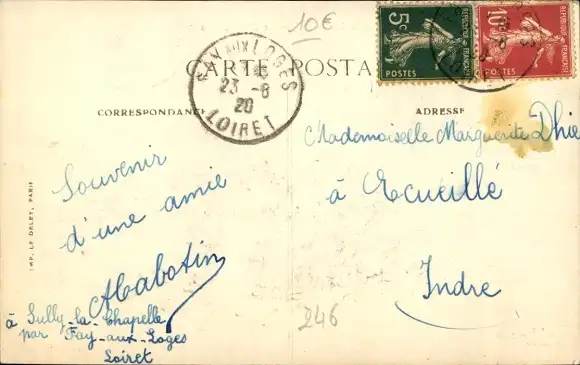 10€
5c
REPUBLIQUE FRANÇAISE
POSTES
10c
REPUBLIQUE FRANÇAISE
POSTES
FAY AUX LOGES
23-8
20
LOIRET
CARTE POSTA
CORRESPONDANCE
ADRESSE
Souvenir
d'une amie
à Sully-la-Chapelle
par Fay-aux-Loges
Loiret
Mademoiselle Marguerite
à Ecueillé
Indre
246
IMP. LE DELEY, PARIS